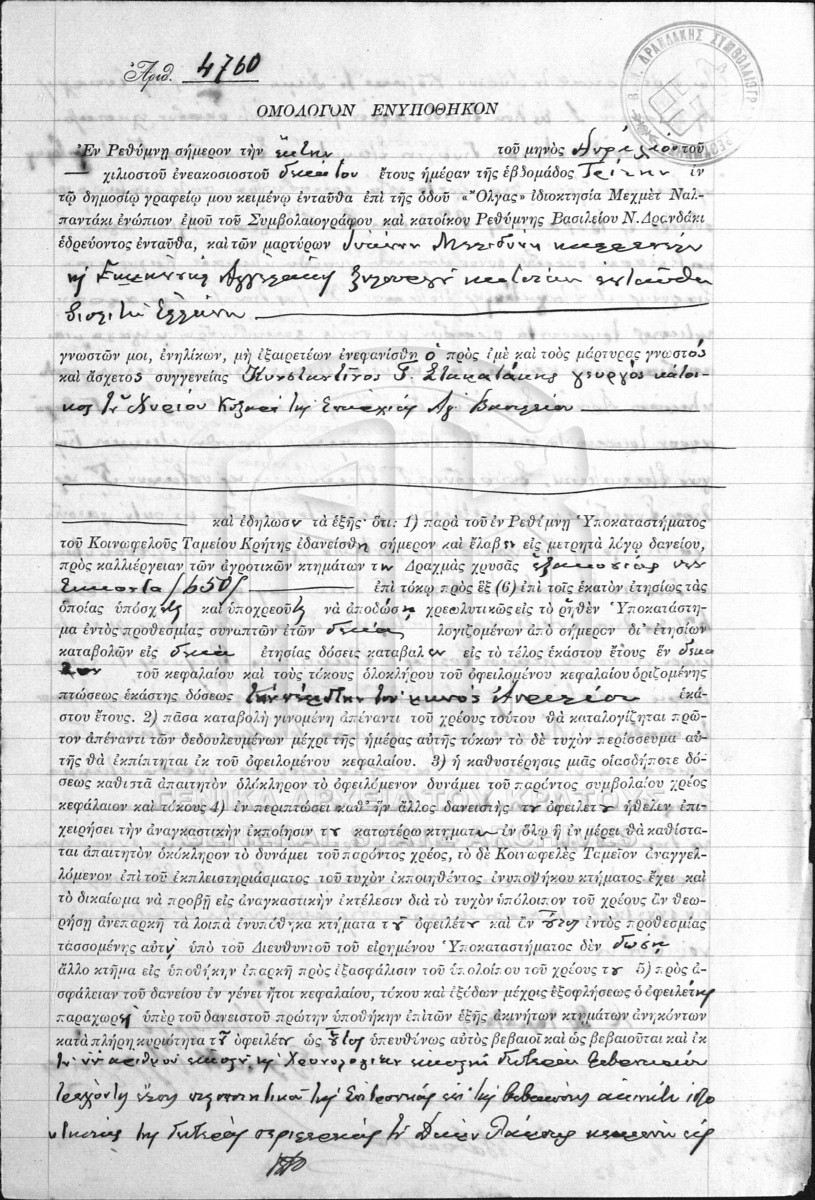 Ἀριθ. 4760
Β. Ν. ΔΡΑΝΔΑΚΗΣ ΣΥΜΒΟΛΑΙΟΓΡ
ΟΜΟΛΟΓΟΝ ΕΝΥΠΟΘΗΚΟΝ
Ἐν Ρεθύμνῃ σήμερον τὴν ἕκτην τοῦ μηνὸς Ἀπριλίου τοῦ
χιλιοστοῦ ἐνεακοσιοστοῦ δεκάτου ἔτους ἡμέραν τῆς ἑβδομάδος Τρίτην ἐν
τῷ δημοσίῳ γραφείῳ μου κειμένῳ ἐνταῦθα ἐπὶ τῆς ὁδοῦ «Ὄλγας» ἰδιοκτησία Μεχμὲτ Ναλ-
παντάκι ἐνώπιον ἐμοῦ τοῦ Συμβολαιογράφου καὶ κατοίκου Ρεθύμνης Βασιλείου Ν. Δρανδάκι
ἑδρεύοντος ἐνταῦθα, καὶ τῶν μαρτύρων Ἰωάννη
ἐνταῦθα
γνωστῶν μοι, ἐνηλίκων, μὴ ἐξαιρετέων ἐνεφανίσθη ὁ πρὸς ἐμὲ καὶ τοὺς μάρτυρας γνωστὸς
καὶ ἄσχετος συγγενείας Κωνσταντῖνος Γ. γεωργὸς κάτοι-
κος τοῦ χωρίου τῆς Ἐπαρχίας Ἁγ. Βασιλείου
καὶ ἐδήλωσεν τὰ ἑξῆς· ὅτι: 1) παρὰ τοῦ ἐν Ρεθύμνῃ Ὑποκαταστήματος
τοῦ Κοινωφελοῦς Ταμείου Κρήτης ἐδανείσθη σήμερον καὶ ἔλαβεν εἰς μετρητὰ λόγῳ δανείου,
πρὸς καλλιέργειαν τῶν ἀγροτικῶν κτημάτων του Δραχμὰς χρυσᾶς ἑξακοσίας πεν
τήκοντα /650/ ἐπὶ τόκῳ πρὸς ἓξ (6) ἐπὶ τοῖς ἑκατὸν ἐτησίως τὰς
ὁποίας ὑπόσχεται καὶ ὑποχρεοῦται νὰ ἀποδώσῃ χρεωλυτικῶς εἰς τὸ ῥηθὲν Ὑποκατάστη-
μα ἐντὸς προθεσμίας συναπτῶν ἐτῶν δέκα λογιζομένων ἀπὸ σήμερον δι' ἐτησίων
καταβολῶν εἰς δέκα ἐτησίας δόσεις καταβαλ εἰς τὸ τέλος ἑκάστου ἔτους ἓν δέκα
τον τοῦ κεφαλαίου καὶ τοὺς τόκους ὁλοκλήρου τοῦ ὀφειλομένου κεφαλαίου ὁριζομένης
πτώσεως ἑκάστης δόσεως τοῦ μηνὸς Ἀπριλίου ἑκά-
στου ἔτους. 2) πᾶσα καταβολὴ γινομένη ἀπέναντι τοῦ χρέους τούτου θὰ καταλογίζηται πρῶ-
τον ἀπέναντι τῶν δεδουλευμένων μέχρι τῆς ἡμέρας αὐτῆς τόκων τὸ δὲ τυχὸν περίσσευμα αὐ-
τῆς θὰ ἐκπίπτηται ἐκ τοῦ ὀφειλομένου κεφαλαίου. 3) ἡ καθυστέρησις μιᾶς οἱασδήποτε δό-
σεως καθιστᾷ ἀπαιτητὸν ὁλόκληρον τὸ ὀφειλόμενον δυνάμει τοῦ παρόντος συμβολαίου χρέος
κεφάλαιον καὶ τόκους 4) ἐν περιπτώσει καθ' ἣν ἄλλος δανειστὴς του ὀφειλέτου ἤθελεν ἐπι-
ΓΕΝΙΚΑ ΑΡΧΕΙΑ ΤΟΥ ΚΡΑΤΟΥΣ
χειρήσει τὴν ἀναγκαστικὴν ἐκποίησιν του κατωτέρω κτηματ ἐν ὅλῳ ἢ ἐν μέρει θὰ καθίστα-
GENERAL STATE ARCHIVES
ται ἀπαιτητὸν ὁλόκληρον τὸ δυνάμει τοῦ παρόντος χρέος, τὸ δὲ Κοινωφελὲς Ταμεῖον ἀναγγελ-
λόμενον ἐπὶ τοῦ ἐκπλειστηριάσματος τοῦ τυχὸν ἐκποιηθέντος ἐνυποθήκου κτήματος ἔχει καὶ
τὸ δικαίωμα νὰ προβῇ εἰς ἀναγκαστικὴν ἐκτέλεσιν διὰ τὸ τυχὸν ὑπόλοιπον τοῦ χρέους ἂν θεω-
ρήσῃ ἀνεπαρκῆ τὰ λοιπὰ ἐνυπόθηκα κτήματα του ὀφειλέτου καὶ ἂν οὗτος ἐντὸς προθεσμίας
τασσομένης αὐτῷ ὑπὸ τοῦ Διευθυντοῦ τοῦ εἰρημένου Ὑποκαταστήματος δὲν δώσῃ
ἄλλο κτῆμα εἰς ὑποθήκην ἐπαρκῆ πρὸς ἐξασφάλισιν τοῦ ὑπολοίπου τοῦ χρέους του 5) πρὸς ἀ-
σφάλειαν τοῦ δανείου ἐν γένει ἤτοι κεφαλαίου, τόκου καὶ ἐξόδων μέχρις ἐξοφλήσεως ὁ ὀφειλέτης
παραχωρεῖ ὑπὲρ τοῦ δανειστοῦ πρώτην ὑποθήκην ἐπὶ τῶν ἑξῆς ἀκινήτων κτημάτων ἀνηκόντων
κατὰ πλήρη κυριότητα τοῦ ὀφειλέτου ὡς οὗτος ὑπευθύνως αὐτὸς βεβαιοῖ καὶ ὡς βεβαιοῦται καὶ ἐκ
τῆς Ἐπιτροπείας
τῆς δευτέρας περιφερείας τοῦ Δήμου Λάμπης κειμένων εἰς